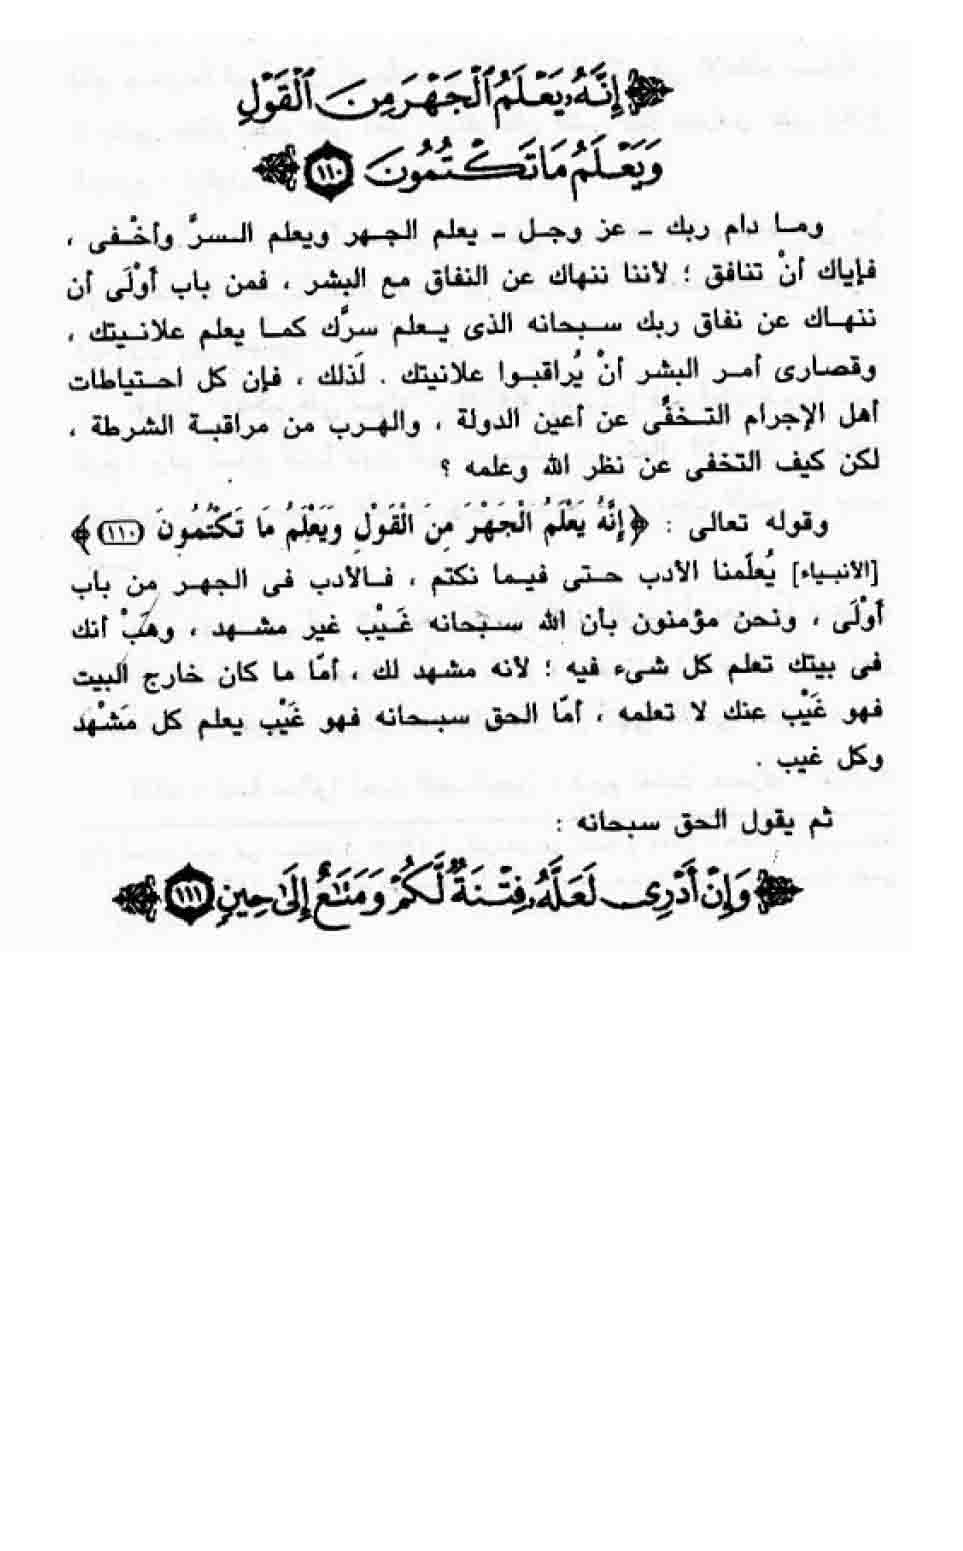 ﴿ إِنَّهُ يَعْلَمُ الْجَهْرَ مِنَ الْقَوْلِ
وَيَعْلَمُ مَا تَكْتُمُونَ ١١٠ ﴾
ومـا دام ربك ـ عز وجـل ـ يعلم الجهر ويعلم السرَّ وأخْفى ،
فإياك أنْ تنافق ؛ لأننا ننهاك عن النفاق مع البشر ، فمن باب أَوْلَى أن
ننهاك عن نفاق ربك سبحانه الذى يعلم سرَّك كما يعلم علانيتك ،
وقصارى أمر البشر أنْ يُراقبوا علانيتك . لَذلك ، فإن كل احتياطات
أهل الإجرام التخفِّى عن أعين الدولة ، والهرب من مراقبة الشرطة ،
لكن كيف التخفى عن نظر الله وعلمه ؟
وقوله تعالى : ﴿ إِنَّهُ يَعْلَمُ الْجَهْرَ مِنَ الْقَوْلِ وَيَعْلَمُ مَا تَكْتُمُونَ (١١٠) ﴾
[الأنبياء] يُعلِّمنا الأدب حتى فيما نكتم ، فالأدب فى الجهر من باب
أَوْلَى ، ونحن مؤمنون بأن الله سبحانه غَيْب غير مشهد ، وهَبْ أنك
فى بيتك تعلم كل شىء فيه ؛ لأنه مشهد لك ، أمّا ما كان خارج البيت
فهو غَيْب عنك لا تعلمه ، أمّا الحق سبحانه فهو غَيْب يعلم كل مَشْهد
وكل غيب .
ثم يقول الحق سبحانه :
﴿ وَإِنْ أَدْرِى لَعَلَّهُ فِتْنَةٌ لَّكُمْ وَمَتَاعٌ إِلَى حِينٍ ١١١ ﴾